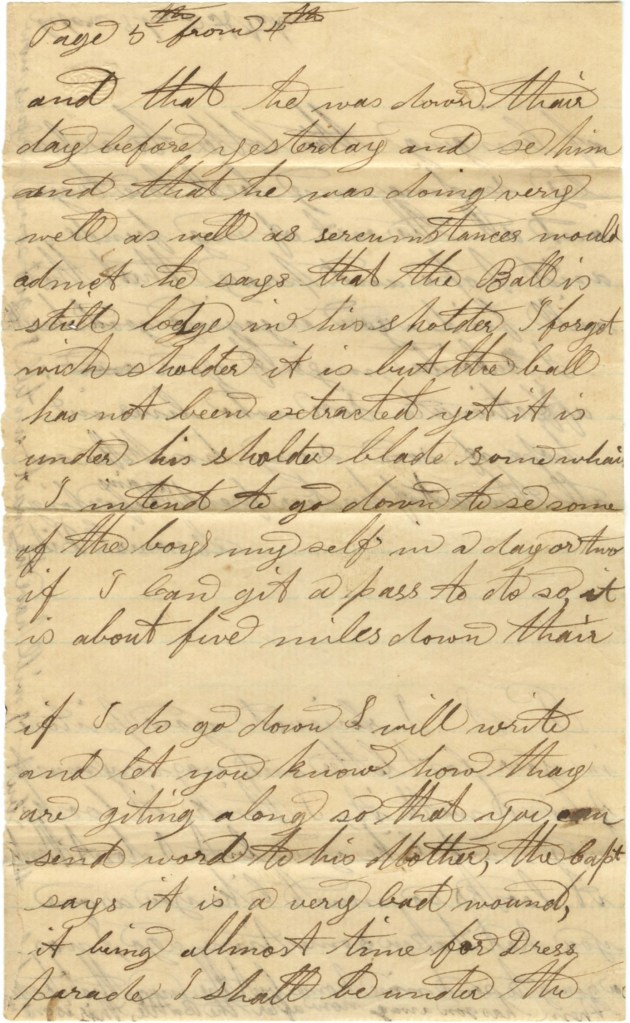 Page 5th from 4th
and that he was down thair
day before yesterday and se him
and that he was doing very
well as well as sercumstances would
admet he says that the Ball is
still lodge in his sholder, I forgot
wich sholder it is but the ball
has not been extracted yet it is
under his sholder blade somewhair
I intend to go down to se some
of the boys my self in a day or two
if I can git a pass to do so, it
is about five miles down thair
if I do go down I will write
and let you know how thay
are giting along so that you can
send word to his Mother, the Capt
says it is a very bad wound,
it being allmost time for Dress
parade I shall be under the